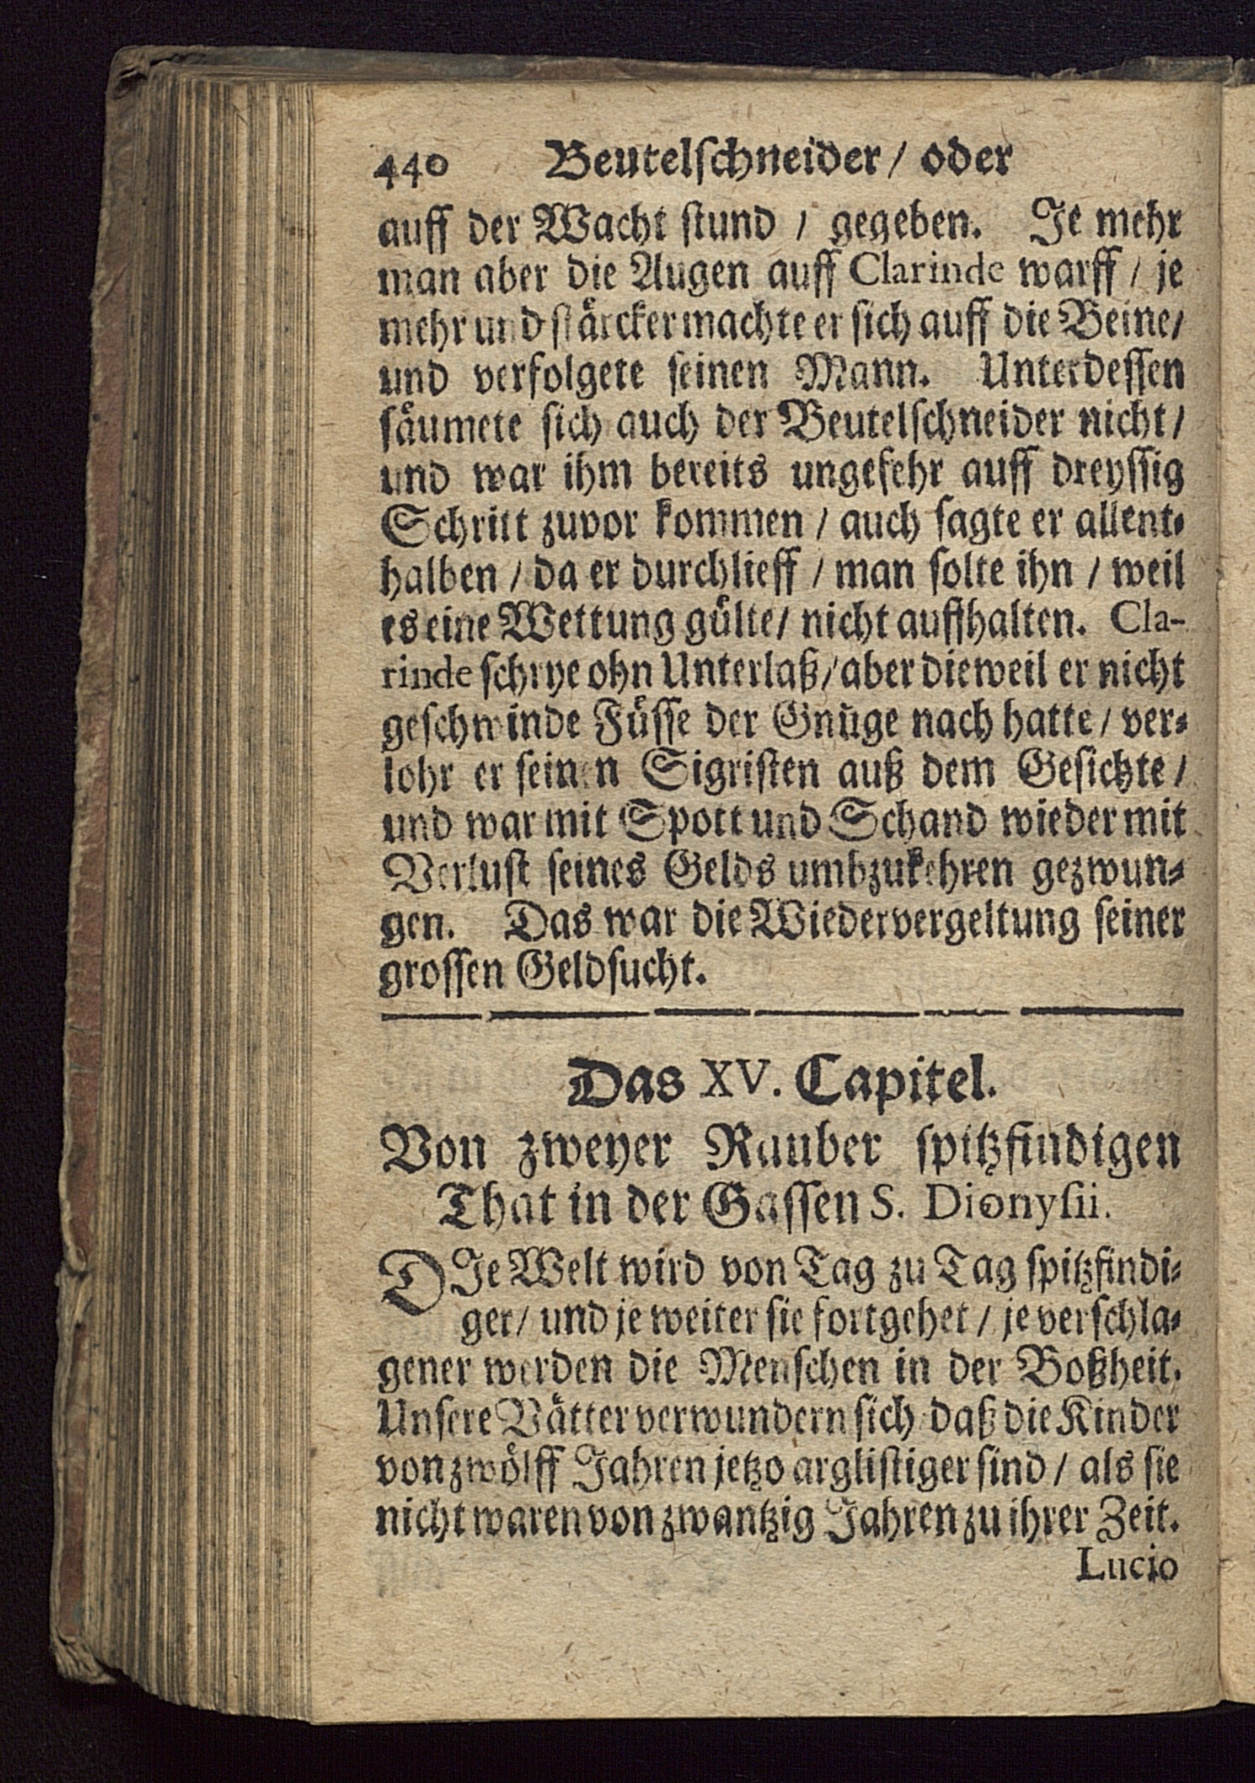 440 Beutelschneider / oder
auff der Wacht stund / gegeben. Je mehr
man aber die Augen auff Clarinde warff / je
mehr und stärcker machte er sich auff die Beine /
und verfolgete seinen Mann. Unterdessen
säumete sich auch der Beutelschneider nicht /
und war ihm bereits ungefehr auff dreyssig
Schritt zuvor kommen / auch sagte er allent-
halben / da er durchlieff / man solte ihn / weil
es eine Wettung gülte / nicht auffhalten. Cla-
rinde schrye ohn Unterlaß / aber dieweil er nicht
geschwinde Füsse der Gnüge nach hatte / ver-
lohr er seinen Sigristen auß dem Gesichte /
und war mit Spott und Schand wieder mit
Verlust seines Gelds umbzukehren gezwun-
gen. Das war die Wiedervergeltung seiner
grossen Geldsucht.
Das XV. Capitel.
Von zweyer Rauber spitzfindigen
That in der Gassen S. Dionysii.
DIe Welt wird von Tag zu Tag spitzfindi-
ger / und je weiter sie fortgehet / je verschla-
gener werden die Menschen in der Boßheit.
Unsere Vätter verwundern sich daß die Kinder
von zwölff Jahren jetzo arglistiger sind / als sie
nicht waren von zwantzig Jahren zu ihrer Zeit.
Lucio